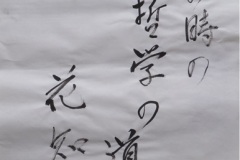 時の
哲学の道
花知